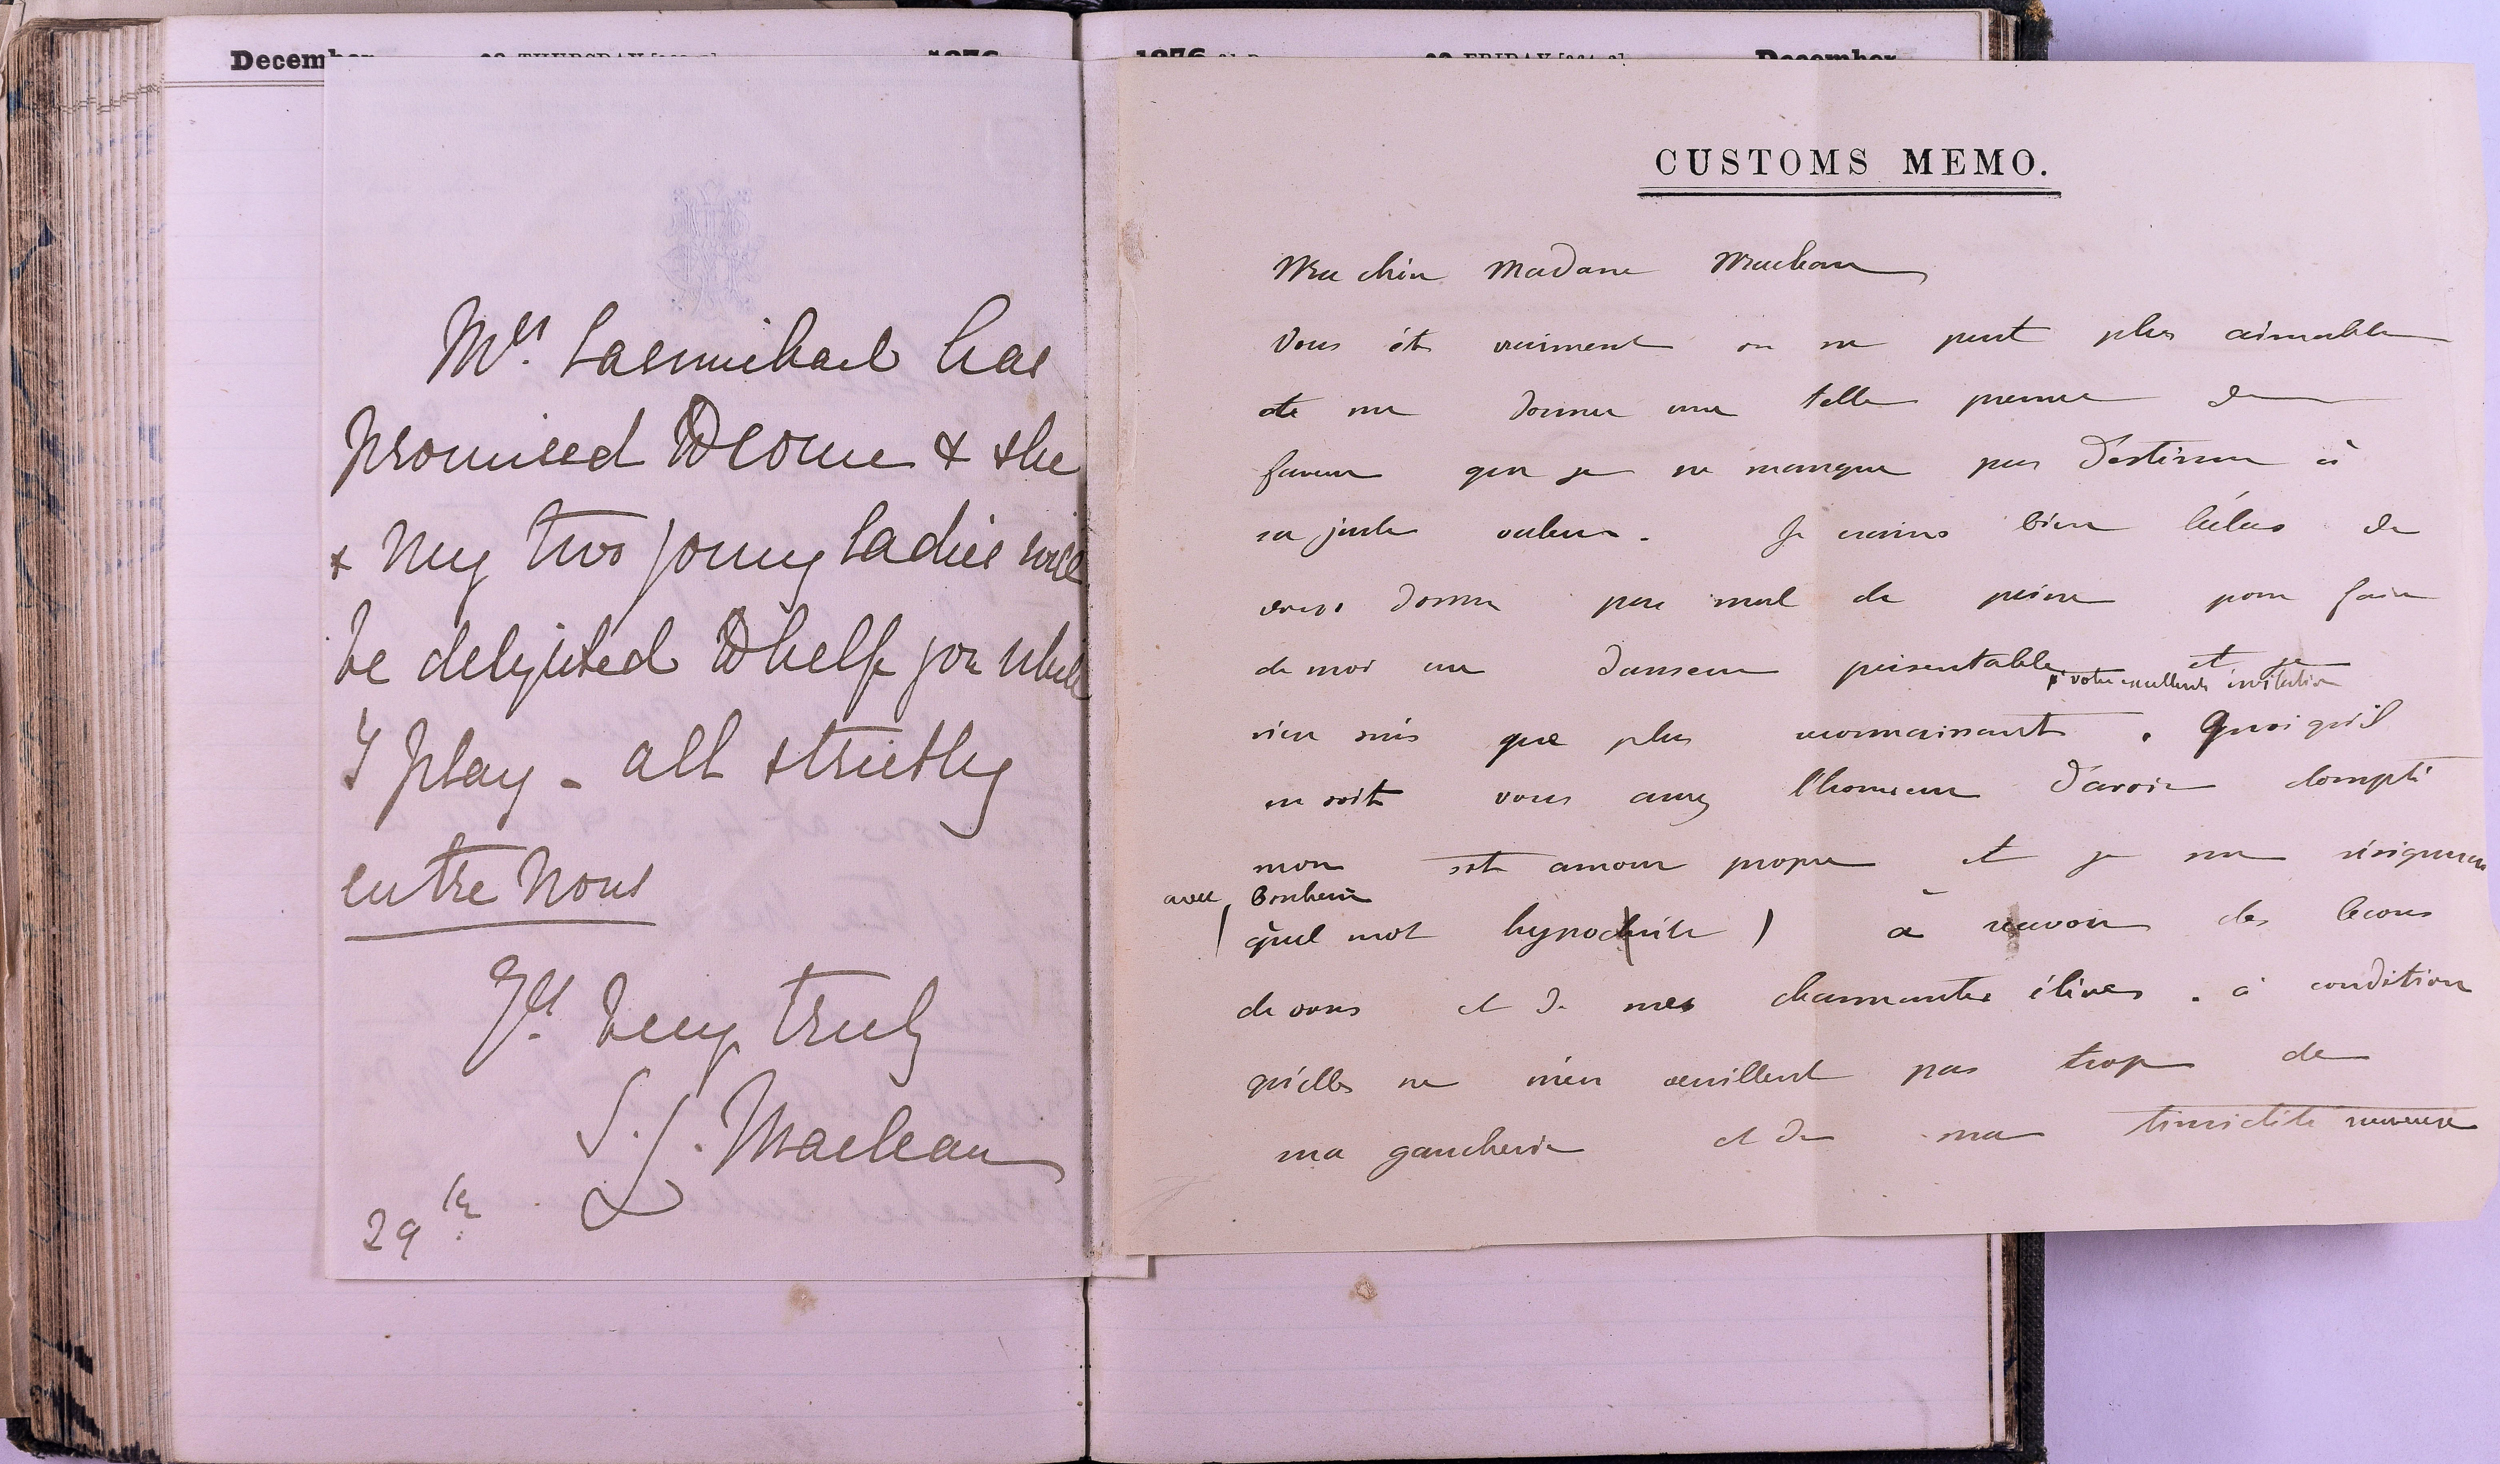 December
1876
Mrs. Carmichael has
promised to come & she
& my two young ladies will
be delighted to help you while
I play - all strictly
entre nous
Yrs. very truly
S. L. Maclean
29th
1876
FRIDAY
December
CUSTOMS MEMO.
Ma chère Madame Maclean
Vous êtes vraiment on ne peut plus aimable
de me donner une telle preuve de
faveur que je ne manque pas d'estimer à
sa juste valeur. Je crains bien hélas de
vous donner pas mal de peine pour faire
de moi un danseur présentable et je
votre excellente invitation
n'en suis que plus reconnaissant. Quoiqu'il
en soit vous aurez l'honneur d'avoir dompté
mon sot amour propre et je me résignerai
avec Bonheur
(quel mot hypocrite) à recevoir des leçons
de vous et de mes charmantes élèves. à condition
qu'elles ne m'en veuillent pas trop de
ma gaucherie et de ma timidité nerveuse